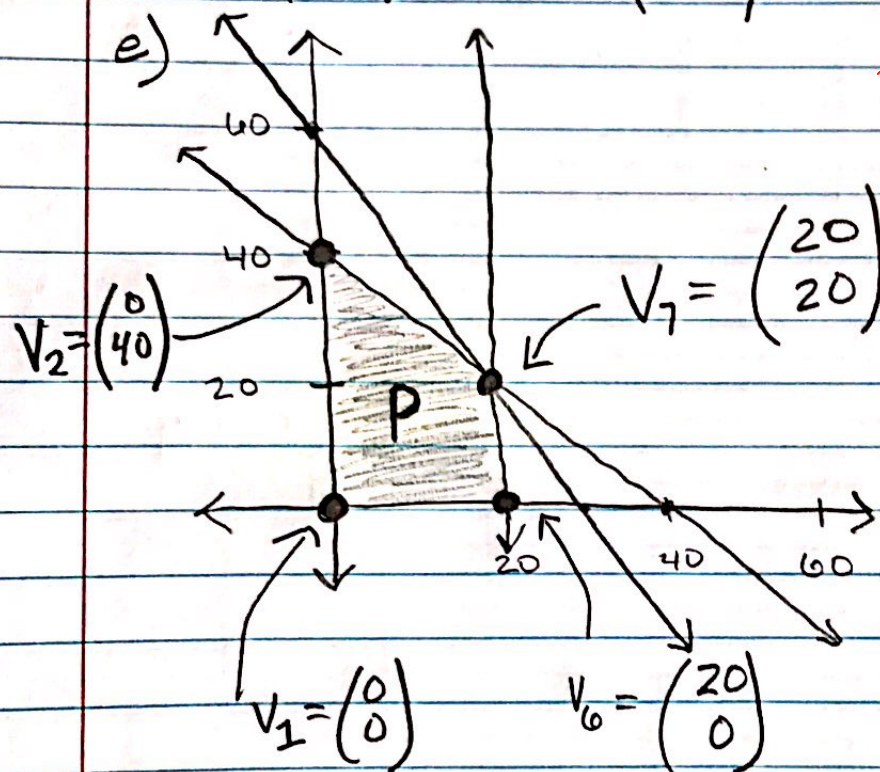 e)
60
40
V₂ = (0
40)
20
P
V₇ = (20
20)
20
40
60
V₁ = (0
0)
V₆ = (20
0)